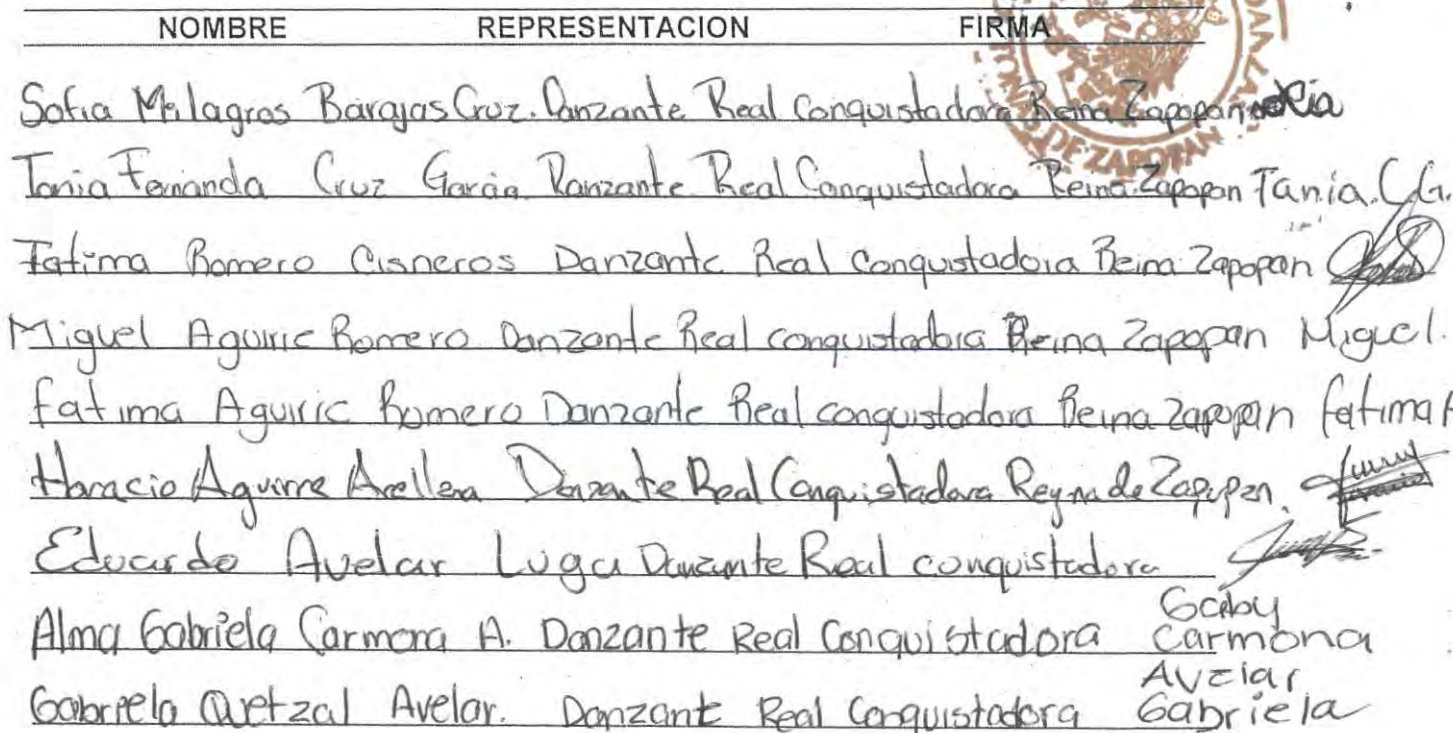 NOMBRE REPRESENTACION FIRMA
Sofia Milagros Barajas Cruz. Danzante Real Conquistadora Reina Zapopan
Tania Fernanda Cruz García Danzante Real Conquistadora Reina Zapopan Tania. C.G.
DE ZAPOPAN
Fatima Romero Cisneros Danzante Real Conquistadora Reina Zapopan
Miguel Aguirre Romero Danzante Real conquistadora Reina Zapopan Miguel.
fatima Aguirre Romero Danzante Real conquistadora Reina Zapopan fatima
Horacio Aguirre Arellena Danzante Real Conquistadora Reyna de Zapopan.
Eduardo Avelar Lugo Danzante Real conquistadora
Alma Gabriela Carmona A. Danzante Real Conquistadora Gaby Carmona
Gabriela Quetzal Avelar. Danzante Real Conquistadora Avelar Gabriela